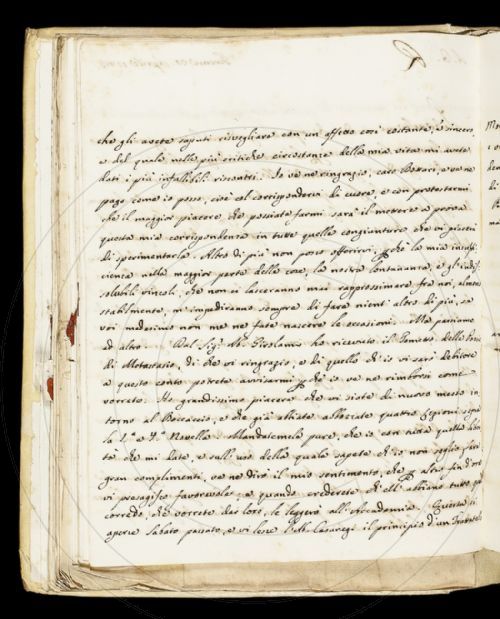 che gli avete saputi risvegliare con un affetto così costante, e sincero,
e del quale nelle più critiche circostanze della mia vita mi avete
dati i più infallibili riscontri. Io ve ne ringrazio, caro Bottari, e ve ne
pago come io posso, cioè al corrispondervi di cuore, e con protestarmi
che il maggior piacere, che possiate farmi sarà il mettere a prova
questa mia corrispondenza in tutte quelle congiunture che vi piacerà
di sperimentarla. Altro di più non posso offerirvi, pchè la mia insuffi-
cienza nella maggior parte delle cose, la nostra lontananza, e gl'indis-
solubili vincoli, che non ci lasceranno mai rapprossimare fra noi, almeno
stabilmente, m'impediranno sempre di fare niente altro di più, se
voi medesimo non me ne fate nascere le occasioni. Ma passiamo
ad altro. Dal Sig.
di che vi ringrazio, e di quello ch'io vi sarò debitore
a questo conto potrete avvisarmi, pchè io ve ne rimborsi come
vorrete. Ho grandissimo piacere che vi siate di nuovo messo in-
torno al Boccaccio, e che già abbiate abbozzate quattro Lezioni sopra
la 1.ª e 4.ª Novella. Mandatemele pure, che io con tutta quella liber-
tà che mi date, e sull'uso della quale sapete ch'io non soglio fare
gran complimenti, ve ne dirò il mio sentimento, che p altro fin d'ora
vi presagisco favorevole, e quando crederete ch'ell'abbiano tutto quel
corredo, che vorrete dar loro, le leggerò all'Accademia. Questa si
aperse Sabato passato, e vi lesse il principio d'un